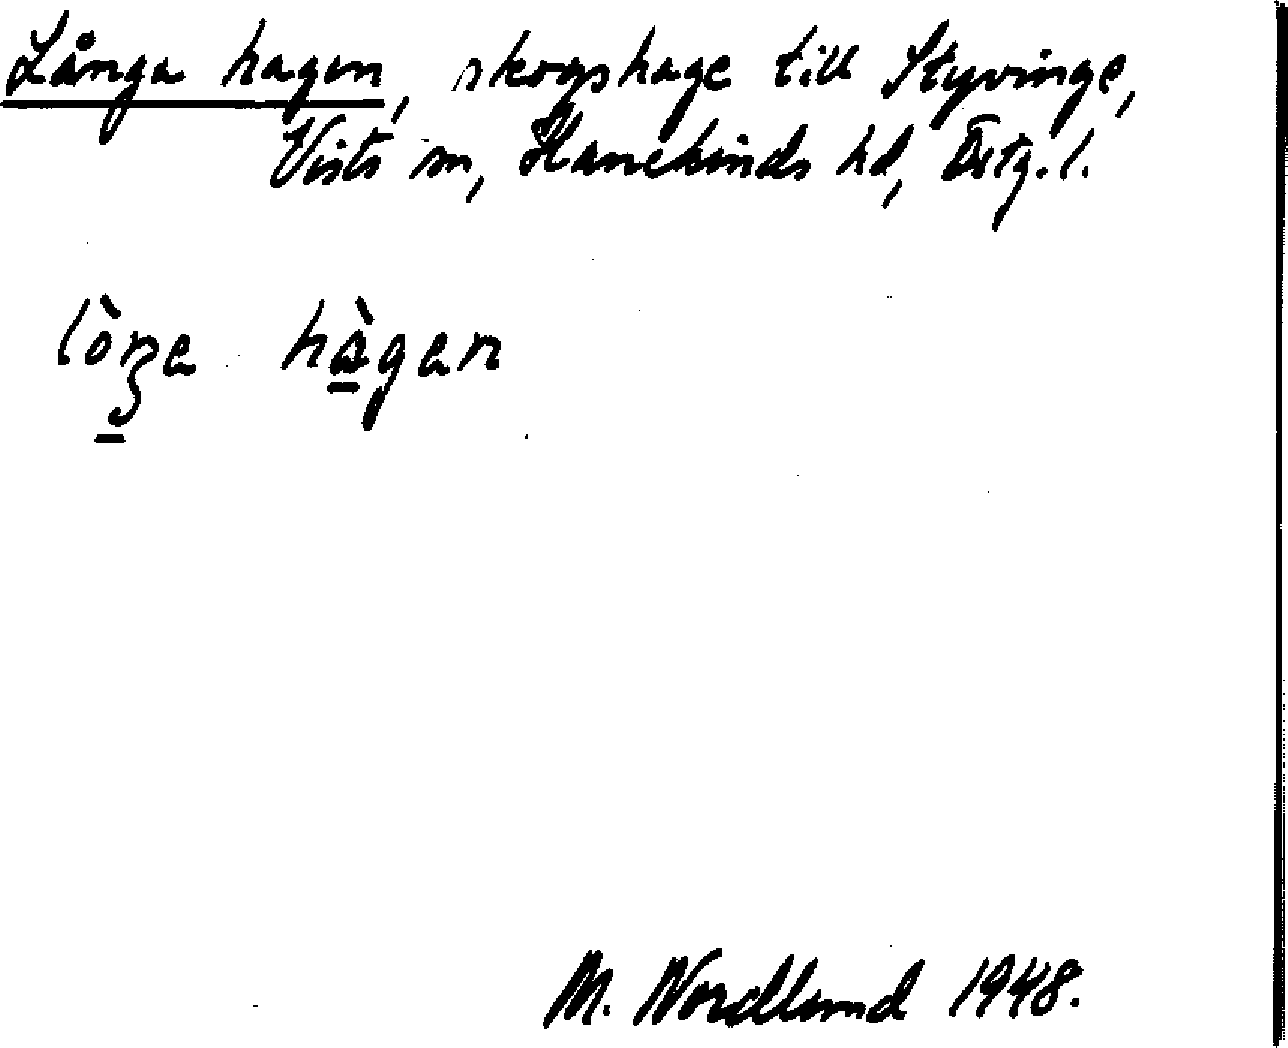 Långa hagen, skogshage till Styvinge,
Vists sn, Hanekinds hd, Östg. l.
lòŋa hàgan
M. Nordlund 1948.